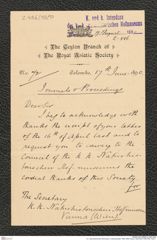 K. und k. Intendanz
The Ceylon Branch of
The Royal Asiatic Society
Colombo, 17th June 1890.
Journals & Proceedings
Dear Sir
I beg to acknowledge with
thanks the receipt of your letter
of the 16th of April last and
request you to convey to the
Council of the K. K. Naturhis-
torischen Hof museums the
cordial thanks of this Society
The Secretary
K. K. Naturhistorischen Hofmuseum
Vienna (Wien)